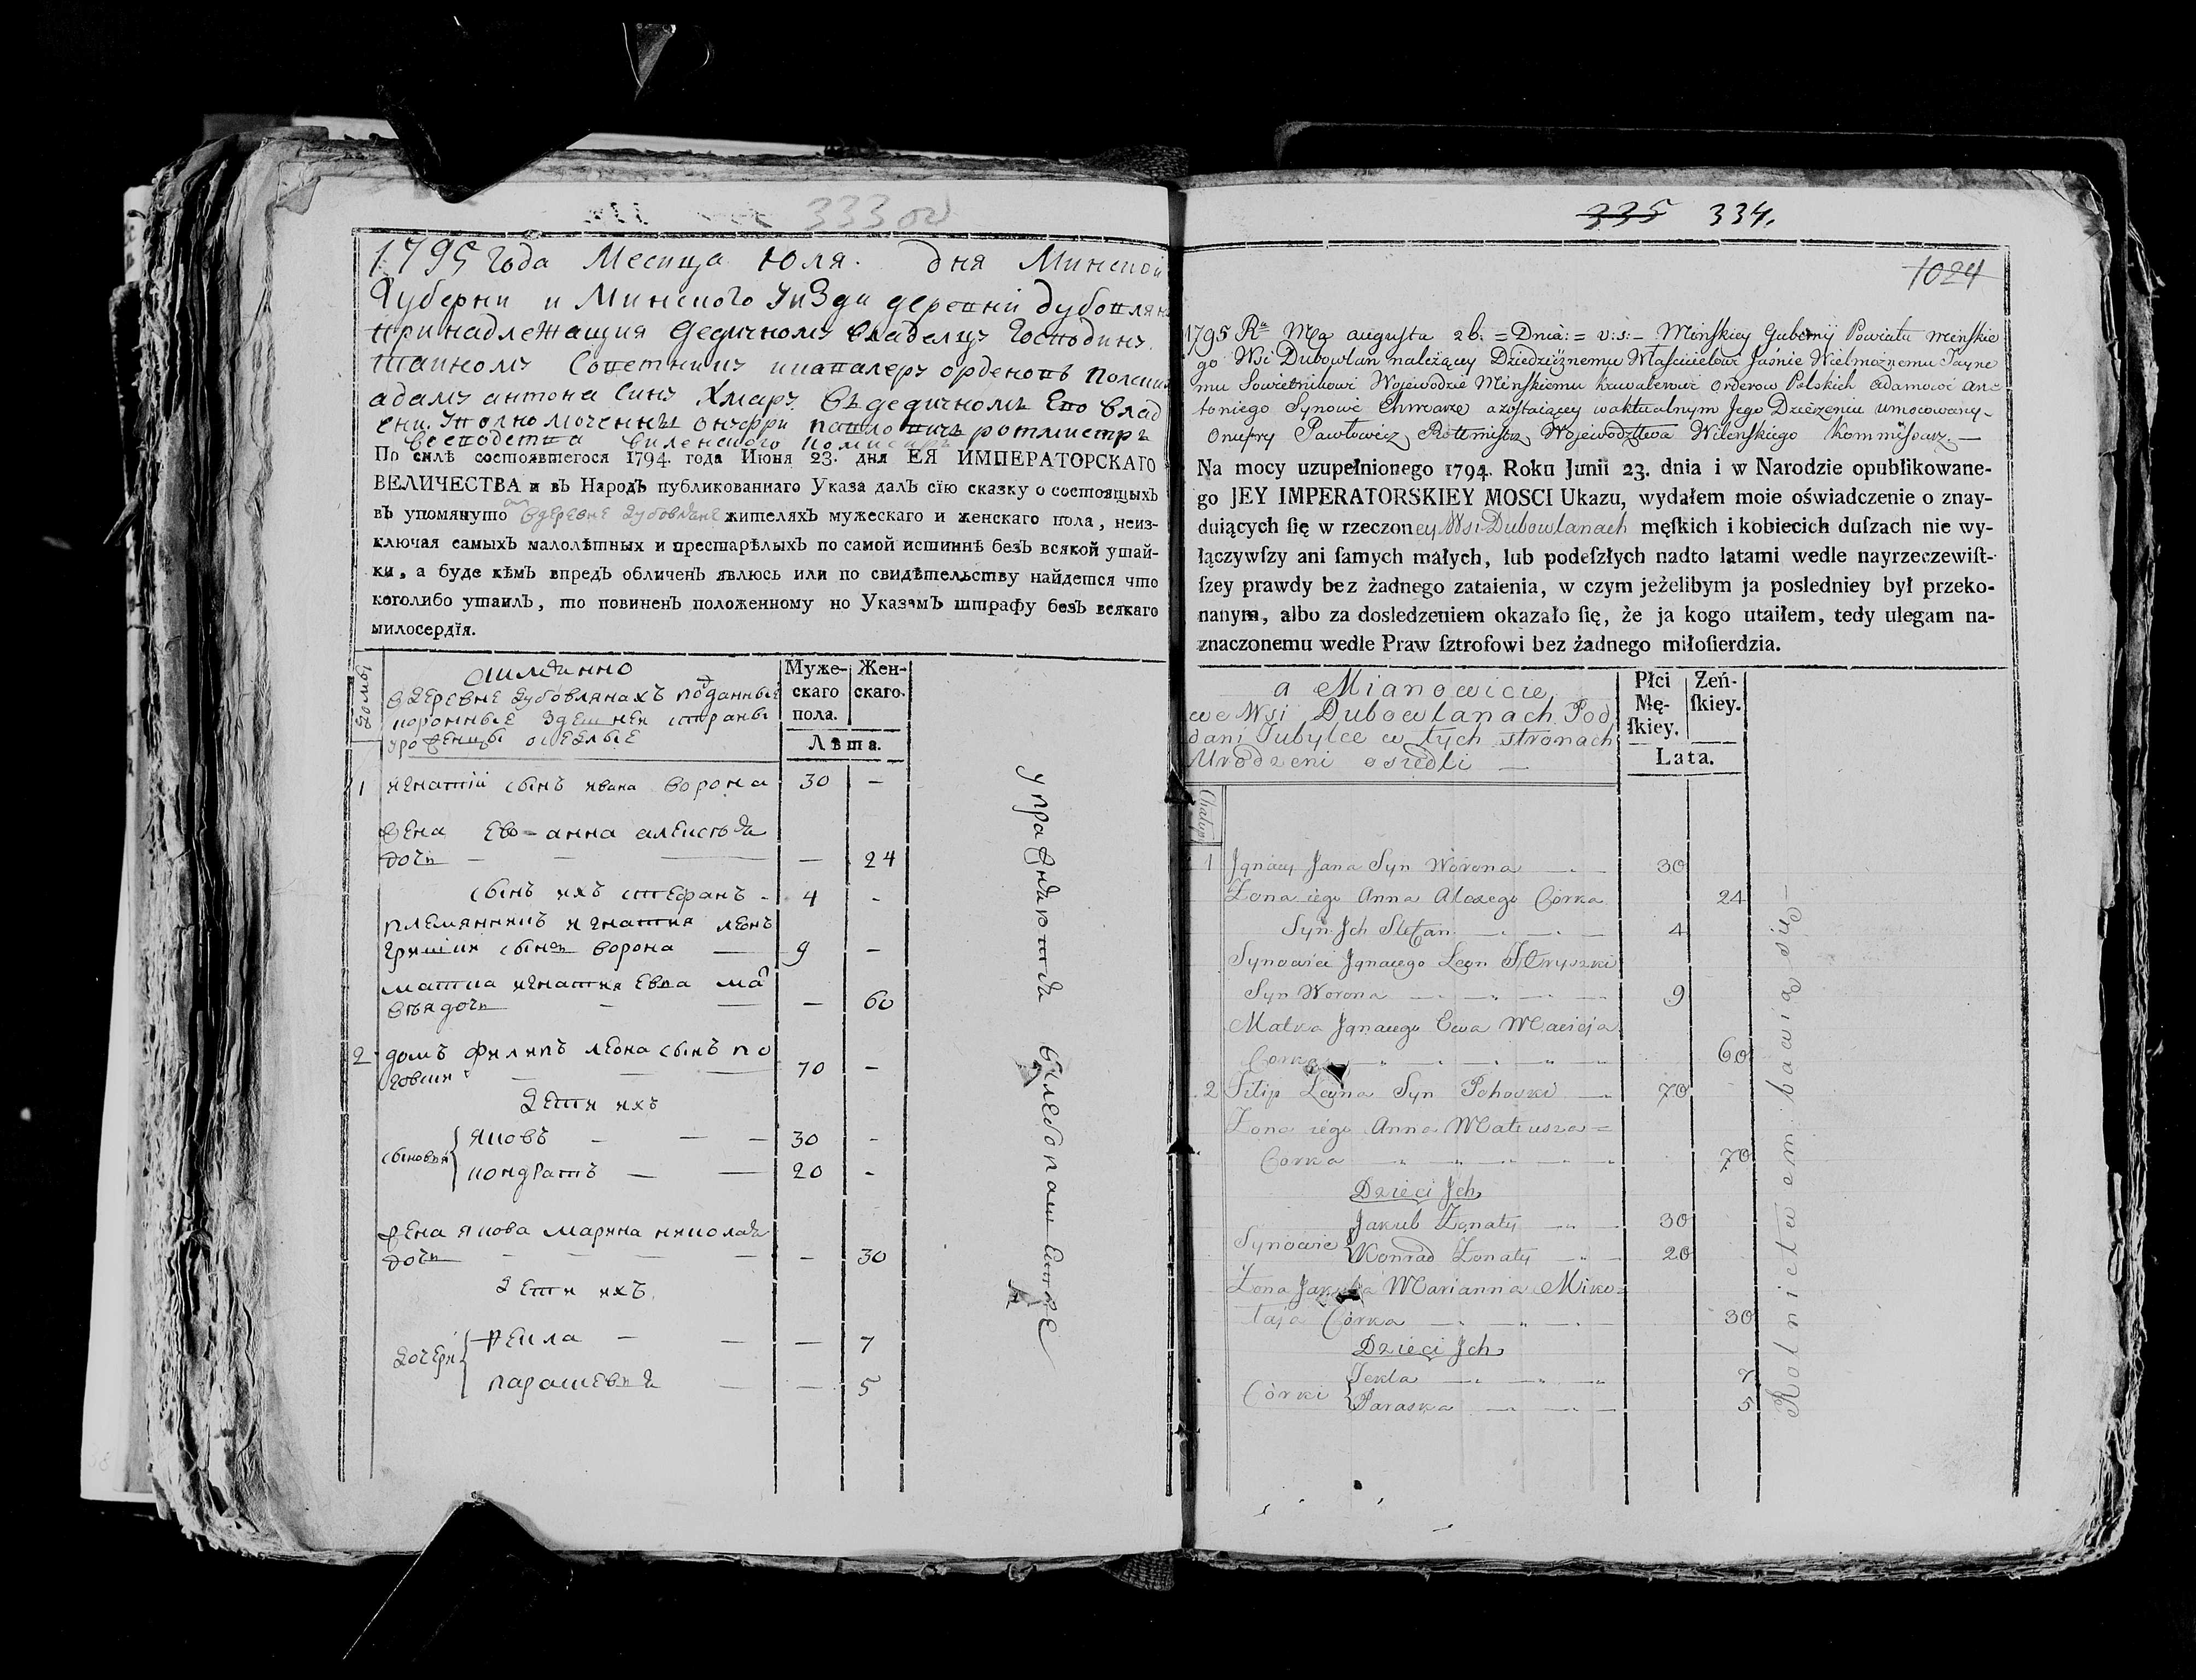 333 об
1795 года Месеца Юля. дня Минской
Губерни и Минского уезда деревни дубовлян
принадлежащия Дедичному владелцу Господину
тайному Советнику и кавалеру орденовъ полских
адаму антона сину Хмару въ дедичномъ Его влад
ени. Уполномоченны онуфри павловичъ ротмистръ
воеводства виленского комисаръ
По силѣ состоявшегося 1794. года Июня 23. дня ЕЯ ИМПЕРАТОРСКАГО
ВЕЛИЧЕСТВА и въ Народъ публикованнаго Указа далъ сїю сказку о состоящыхъ
въ упомянуто вдеревне дубовляне жителяхъ мужескаго и женскаго пола, неиз-
ключая самыхъ малолѣтныхъ и престарѣлыхъ по самой истиннѣ безъ всякой утай-
ки, а буде кѣмъ впредъ обличенъ явлюсь или по свидѣтельству найдется что
коголибо утаилъ, то повиненъ положенному по Указамъ штрафу безъ всякаго
милосердїя.
домы
аимянно
вдеревне дубовлянахъ поданные
коронные здешнеи страны
уроженцы оседлые
Муже-
скаго
пола.
Жен-
скаго.
Лѣта.
1 игнатїи сынъ ивана ворона 30 —
жена ево анна алексея
дочь — — — — 24
сынъ ихъ стефанъ - 4 -
племянникъ игнатия леонъ
гришки сынъ ворона — 9 —
матка игнатия Евва ма
вея дочь - — — 60
2 домъ филипъ леона сынъ по
говки — — — 70 —
дети ихъ
сыновья
яковъ - — — 30 -
кондратъ — — 20 -
жена якова марина николая
дочь - - - — - 30
дети ихъ
дочери
текла - — — 7
парашевья — — 5
упражняются хлебопашество
335 334.
1024
1795 Ra Mca augusta 26. = Dnia: = v:s: — Minskiey Gubernij Powiatu minskie
go Wsi Dubowlan należącey Dziedzicznemu Właścicielowi Jaśnie Wielmożnemu Tayne
mu Sowietnikowi Wojewodzie Minskiemu kawalerowi orderow Polskich adamowi an=
toniego Synowi Chmarze a zostaiącey w aktualnym Jego Dzierżeniu umocowany-
Onufry Pawłowicz Rotmistrz Wojewodztwa Wilenskiego kommissarz. —
Na mocy uzupełnionego 1794. Roku Junii 23. dnia i w Narodzie opublikowane-
go JEY IMPERATORSKIEY MOSCI Ukazu, wydałem moie oświadczenie o znay-
duiących ſię w rzeczoney Wsi Dubowlanach męſkich i kobiecich duſzach nie wy-
łączywſzy ani ſamych małych, lub podeſzłych nadto latami wedle nayrzeczewiſt-
ſzey prawdy bez żadnego zataienia, w czym jeżelibym ja posledniey był przeko-
nanym, albo za dosledzeniem okazało ſię, że ja kogo utaiłem, tedy ulegam na-
znaczonemu wedle Praw ſztrofowi bez żadnego miłoſierdzia.
a Mianowicie
we Wsi Dubowlanach Pod
dani Tubylce w tych stronach
Urodzeni osiedli —
Płci
Mę-
ſkiey.
Żeń-
ſkiey.
Lata.
Chałupy
1 Jgnacy Jana Syn Worona — 30
Żona iego Anna Alexego Corka 24
Syn Jch Stefan — 4
Synowiec Jgnacego Leon Hryszki
Syn Worona — 9
Matka Jgnacego Ewa Macieja
Corka — 60
2 Filip Leona Syn Pohowki — 70
Żona iego Anna Mateusza =
Corka — 70
Dzieci Jch
Synowie
Jakub Żonaty — 30
Konrad Żonaty — 20
Żona Jakuba Marianna Miko=
łaja Córka — 30
Dzieci Jch
Córki
Tekla — 7
Paraska — 5
Rolnictwem bawią się —